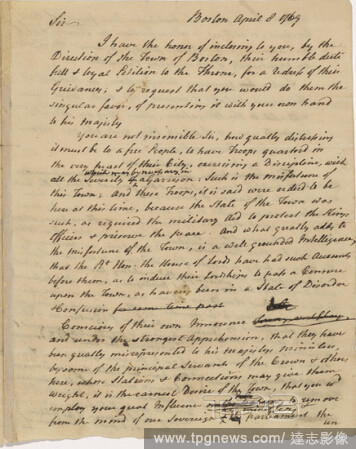 Boston April 8 1769
Sir
I have the honor of inclosing to you, by the
Direction of the Town of Boston, their humble duti
full & loyal Petition to the Throne, for a redress of their
Grievances; & to request that you would do them the
singular favor, of presenting it with your own hand
to his majesty
You are not insensible Sir, how greatly distressing
it must be to a free People, to have Troops quarterd in
the very heart of their City, exercising a Discipline, with
all the Severity
which may be necessary in
a Garrison. Such is the misfortune of
this Town; And these Troops, it is said were orderd to be
here at this time, because the State of the Town was
such, as required the military Aid to protect the Kings
officers & preserve the peace. And what greatly adds to
the misfortune of the Town, is a well grounded Intelligence,
that the Rt Hon. the House of Lords have had such Accounts
before them, as to induce their Lordships to pass a Censure
upon the Town, as having been in a State of Disorder
& Confusion for some time past
Conscious of their own Innocence
and under the strongest Apprehension, that they have
been greatly misrepresented to his majestys ministers,
by some of the principal Servants of the Crown & others
here, whose Stations & Connections may give them
weight, it is the earnest Desire of the Town, that you wd
employ your great Influence to remove
from the mind of our Sovereign Parliament the
un
www.tpgnews.com / 達志影像